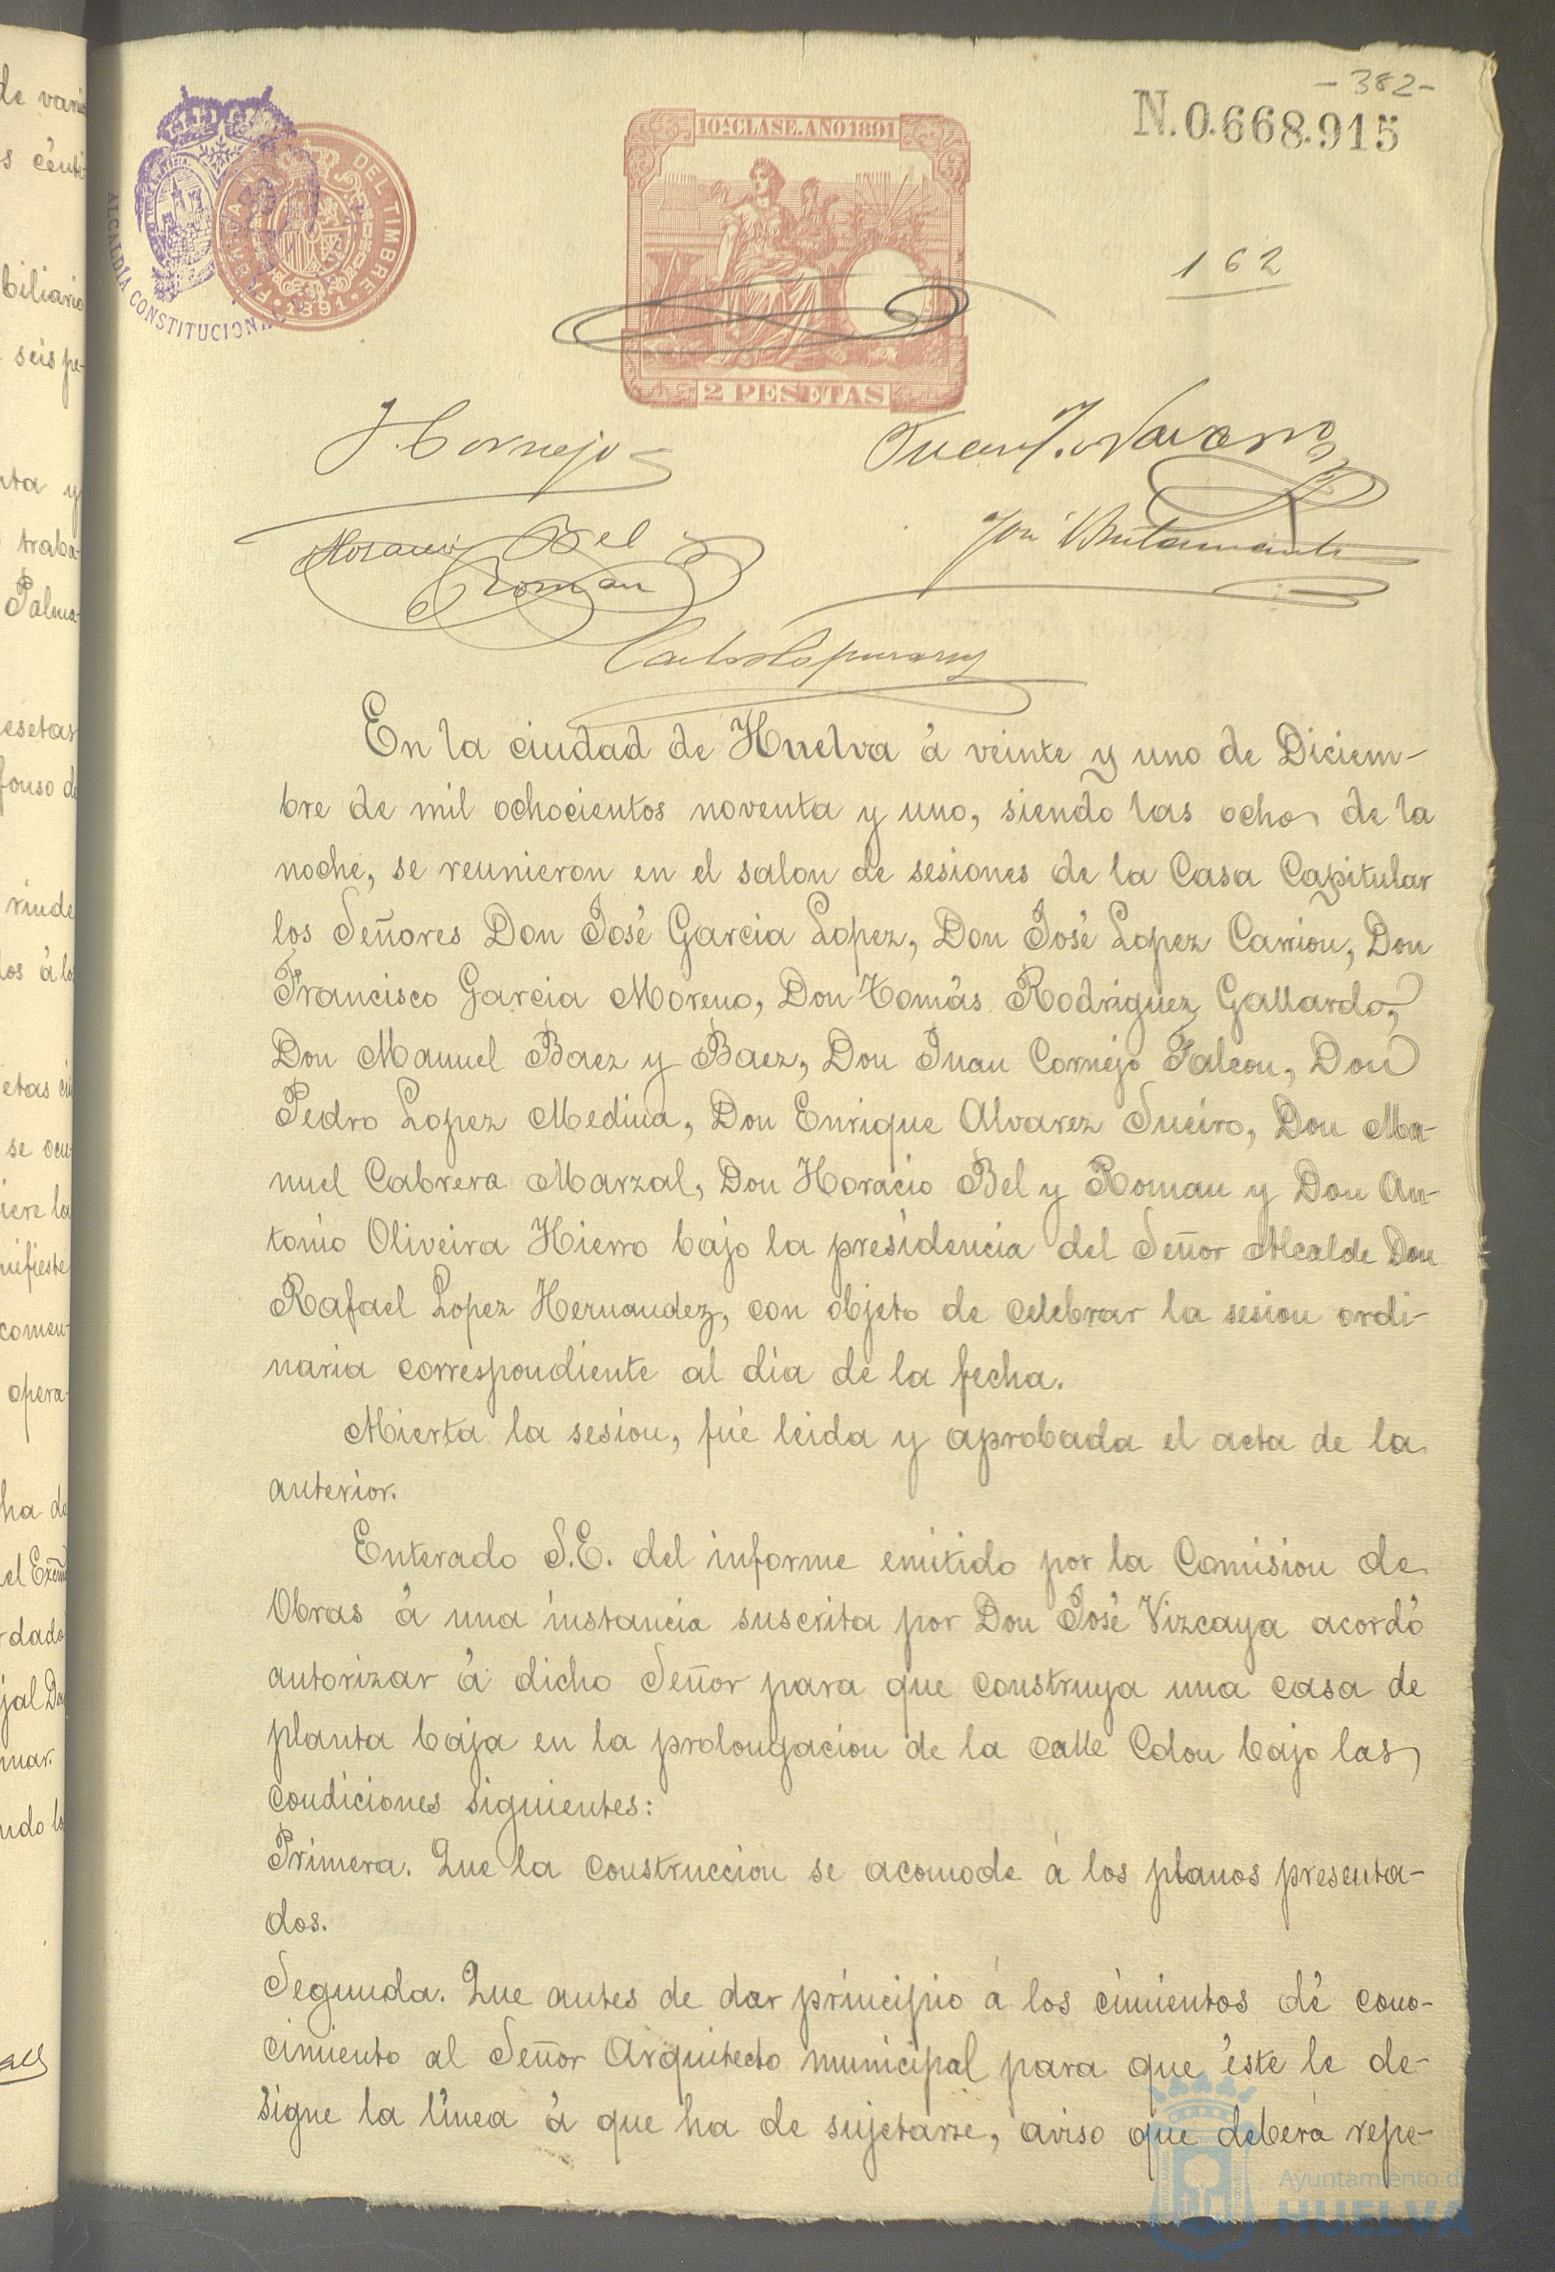 -382-
N.0.668.915
10ª CLASE. AÑO 1891
ALCALDÍA CONSTITUCIONAL
DEL TIMBRE
1891
162
2 PESETAS
J. Cornejo
Juan J. Navarro
Horacio Bel
José Bustamante
Roman
En la ciudad de Huelva á veinte y uno de Diciem-
bre de mil ochocientos noventa y uno, siendo las ocho de la
noche, se reunieron en el salon de sesiones de la Casa Capitular
los Señores Don José Garcia Lopez, Don José Lopez Carrion, Don
Francisco Garcia Moreno, Don Tomás Rodriguez Gallardo,
Don Manuel Baez y Baez, Don Juan Cornejo Falcon, Don
Pedro Lopez Medina, Don Enrique Alvarez Sueiro, Don Ma-
nuel Cabrera Marzal, Don Horacio Bel y Roman y Don An-
tonio Oliveira Hierro bajo la presidencia del Señor Alcalde Don
Rafael Lopez Hernandez, con objeto de celebrar la sesion ordi-
naria correspondiente al dia de la fecha.
Abierta la sesion, fué leida y aprobada el acta de la
anterior.
Enterado S.E. del informe emitido por la Comision de
Obras á una instancia suscrita por Don José Vizcaya acordó
autorizar á dicho Señor para que construya una casa de
planta baja en la prolongacion de la calle Colon bajo las
condiciones siguientes:
Primera. Que la construccion se acomode á los planos presenta-
dos.
Segunda. Que antes de dar principio á los cimientos dé cono-
cimiento al Señor Arquitecto municipal para que éste le de-
signe la línea á que ha de sujetarse, aviso que deberá repe-
Ayuntamiento de
HUELVA